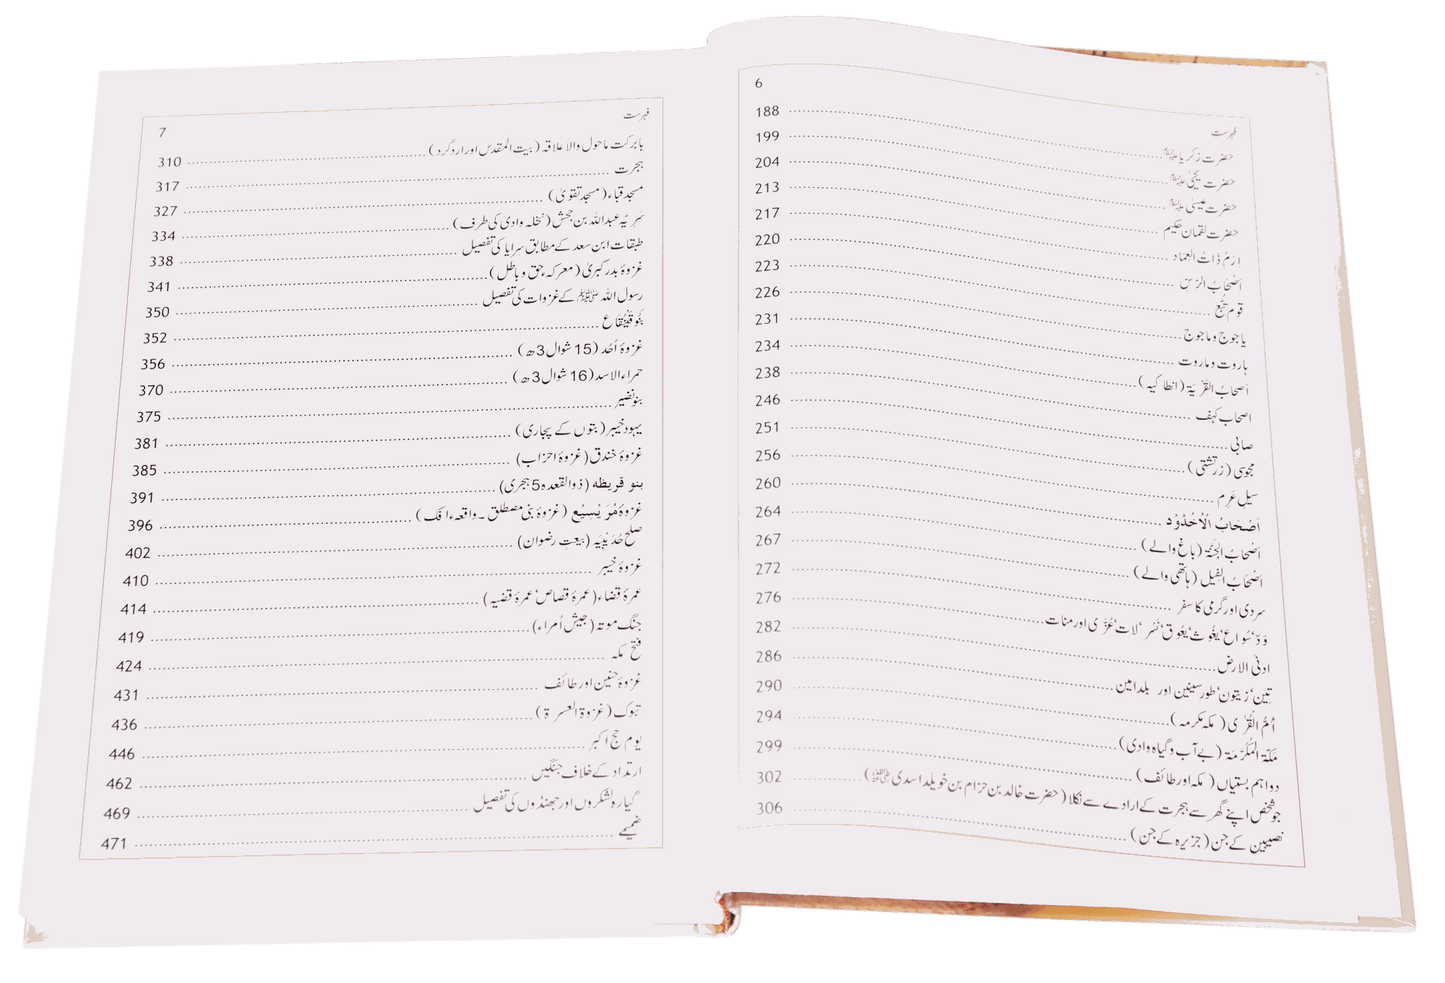 فہرست 6
حضرت زکریا علیہ السلام ........ 188
حضرت یحییٰ علیہ السلام ........ 199
حضرت عیسیٰ علیہ السلام ........ 204
حضرت لقمان حکیم ........ 213
ارم ذات العماد ........ 217
اَصْحَابُ الرَّس ........ 220
قوم تُبَّع ........ 223
یاجوج و ماجوج ........ 226
ہاروت و ماروت ........ 231
اَصحابُ القَرْیَۃ (انطاکیہ) ........ 234
اصحاب کہف ........ 238
صابی ........ 246
مجوسی (زرتشتی) ........ 251
سیل عَرِم ........ 256
اَصْحَابُ الْاُخْدُوْد ........ 260
اَصْحَابُ الجَنَّۃ (باغ والے) ........ 264
اَصْحَابُ الفیل (ہاتھی والے) ........ 267
سردی اور گرمی کا سفر ........ 272
وَدّ‘ سُواع‘ یغُوث‘ یعُوق‘ نَسْر‘ لات‘ عُزّٰی اور منات ........ 276
ادنیٰ الارض ........ 282
تین‘ زیتون‘ طور سینین اور بلد امین ........ 286
اُمُّ الْقُرٰی (مکہ مکرمہ) ........ 290
مَکَّۃ الْمُکَرَّمَۃ (بے آب و گیاہ وادی) ........ 294
دو اہم بستیاں (مکہ اور طائف) ........ 299
جو شخص اپنے گھر سے ہجرت کے ارادے سے نکلا (حضرت خالد بن حزام بن خویلد اسدی رضی اللہ عنہ) ........ 302
نصیبین کے جن (جزیرہ کے جن) ........ 306
فہرست 7
بابرکت ماحول والا علاقہ (بیت المقدس اور اردگرد) ........ 310
ہجرت ........ 317
مسجد قباء (مسجد تقویٰ) ........ 327
سَرِیّہ عبداللہ بن جحش (نخلہ وادی کی طرف) ........ 334
طبقات ابن سعد کے مطابق سرایا کی تفصیل ........ 338
غزوۂ بدر کبریٰ (معرکۂ حق و باطل) ........ 341
رسول اللہ ﷺ کے غزوات کی تفصیل ........ 350
بَنُو قَیْنُقَاع ........ 352
غزوۂ اُحُد (15 شوال 3ھ) ........ 356
حمراء الاسد (16 شوال 3ھ) ........ 370
بنو نضیر ........ 375
یہود خیبر (بتوں کے پجاری) ........ 381
غزوۂ خندق (غزوۂ احزاب) ........ 385
بنو قریظہ (ذوالقعدہ 5 ہجری) ........ 391
غزوۂ مُرَیْسِیْع (غزوۂ بنی مصطلق۔ واقعہء افک) ........ 396
صلح حُدَیْبِیَہ (بیعتِ رضوان) ........ 402
غزوۂ خیبر ........ 410
عمرۂ قضاء (عمرۂ قصاص‘ عمرۂ قضیہ) ........ 414
جنگ موتہ (جیش اُمراء) ........ 419
فتح مکہ ........ 424
غزوۂ حنین اور طائف ........ 431
تبوک (غزوۃ العسرۃ) ........ 436
یوم حج اکبر ........ 446
ارتداد کے خلاف جنگیں ........ 462
گیارہ لشکروں اور جھنڈوں کی تفصیل ........ 469
ضمیمے ........ 471